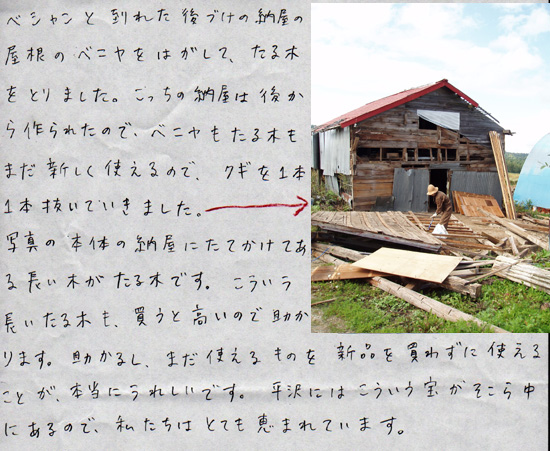 ペシャンと到れた後づけの納屋の
屋根のベニヤをはがして、たる木
をとりました。こっちの納屋は後か
ら作られたので、ベニヤもたる木も
まだ新しく使えるので、クギを1本
1本抜いでいきました。
写真の本体の納屋にたてかけてあ
る長い木がたる木です。こういう
長いたる木も、買うと高いので助か
ります。助かるし、まだ使えるものを新品を買わずに使える
ことが、本当にうれしいです。平沢にはこういう宝がそこら中
にあるので、私たちはとても恵まれています。